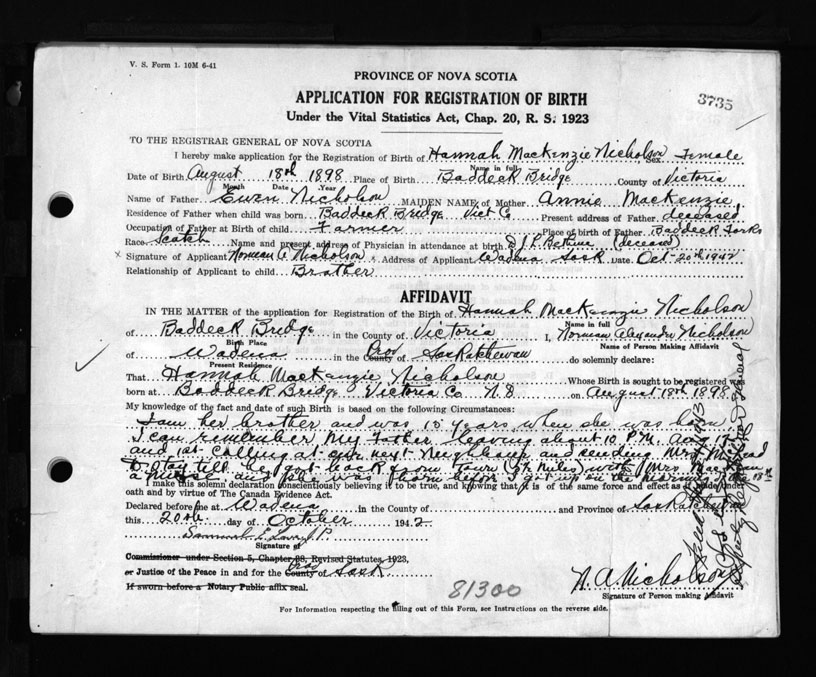 V. S. Form 1. 10M 6-41
PROVINCE OF NOVA SCOTIA
3735
APPLICATION FOR REGISTRATION OF BIRTH
Under the Vital Statistics Act, Chap. 20, R. S. 1923
TO THE REGISTRAR GENERAL OF NOVA SCOTIA
I hereby make application for the Registration of Birth of Hannah MacKenzie Nicholson Sex Female
Name in full
Date of Birth August 18th 1898 Place of Birth Baddeck Bridge County of Victoria
Month Date Year
Name of Father Ewen Nicholson MAIDEN NAME of Mother Annie MacKenzie
Residence of Father when child was born Baddeck Bridge Vict Co Present address of Father deceased
Occupation of Father at Birth of child Farmer Place of birth of Father Baddeck Forks
Race Scotch Name and present address of Physician in attendance at birth D J L Bethune (deceased)
x Signature of Applicant Norman A Nicholson Address of Applicant Wadena Sask Date Oct 20th 1942
Relationship of Applicant to child Brother
AFFIDAVIT
IN THE MATTER of the application for Registration of the Birth of Hannah MacKenzie Nicholson
Name in full
of Baddeck Bridge in the County of Victoria I, Norman Alexander Nicholson
Birth Place Name of Person Making Affidavit
of Wadena in the County Prov of Saskatchewan do solemnly declare:
Present Residence
That Hannah MacKenzie Nicholson Whose Birth is sought to be registered was
born at Baddeck Bridge Victoria Co N.S on August 18th 1898
My knowledge of the fact and date of such Birth is based on the following Circumstances:
I am her brother and was 15 years when she was born
I can remember My Father leaving about 10 P.M. Aug 17
and 1st calling at our next Neighbour and sending Mrs
to stay till he got back from Town with Mrs
a and she was born before I got up in the morning 18th
I make this solemn declaration conscientiously believing it to be true, and knowing that it is of the same force and effect as if made under
oath and by virtue of The Canada Evidence Act.
Declared before me at Wadena in the County of and Province of Saskatchewan
this 20th day of October 1942
Samuel J.P.
Signature of
Commissioner under Section 5, Chapter 38, Revised Statutes, 1923,
or Justice of the Peace in and for the County Prov of Sask
If sworn before a Notary Public affix seal.
81300
N. A. Nicholson
Signature of Person making Affidavit
For Information respecting the filling out of this Form, see Instructions on the reverse side.
Deputy Registrar General